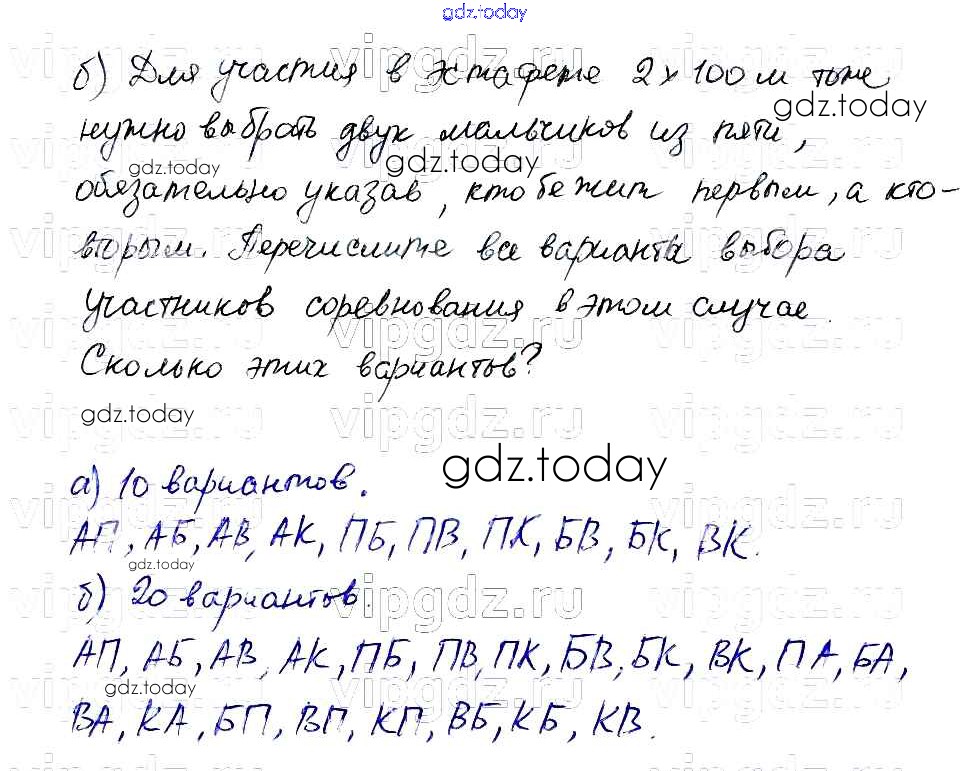 gdz.today
б) Для участия в эстафете 2 х 100 м тоже
gdz.today
нужно выбрать двух мальчиков из пяти,
gdz.today
gdz.today
обязательно указав, кто бежит первым, а кто-
вторым. Перечислите все варианта выбора
участников соревнования в этом случае.
vipgdz.ru
Сколько этих вариантов?
gdz.today
vipgdz.ru
gdz.today
а) 10 вариантов.
АП, АБ, АВ, АК, ПБ, ПВ, ПК, БВ, БК, ВК.
gdz.today
б) 20 вариантов.
vipgdz.ru
АП, АБ, АВ, АК, ПБ, ПВ, ПК, БВ, БК, ВК, ПА, БА,
gdz.today
ВА, КА, БП, ВП, КП, ВБ, КБ, КВ.